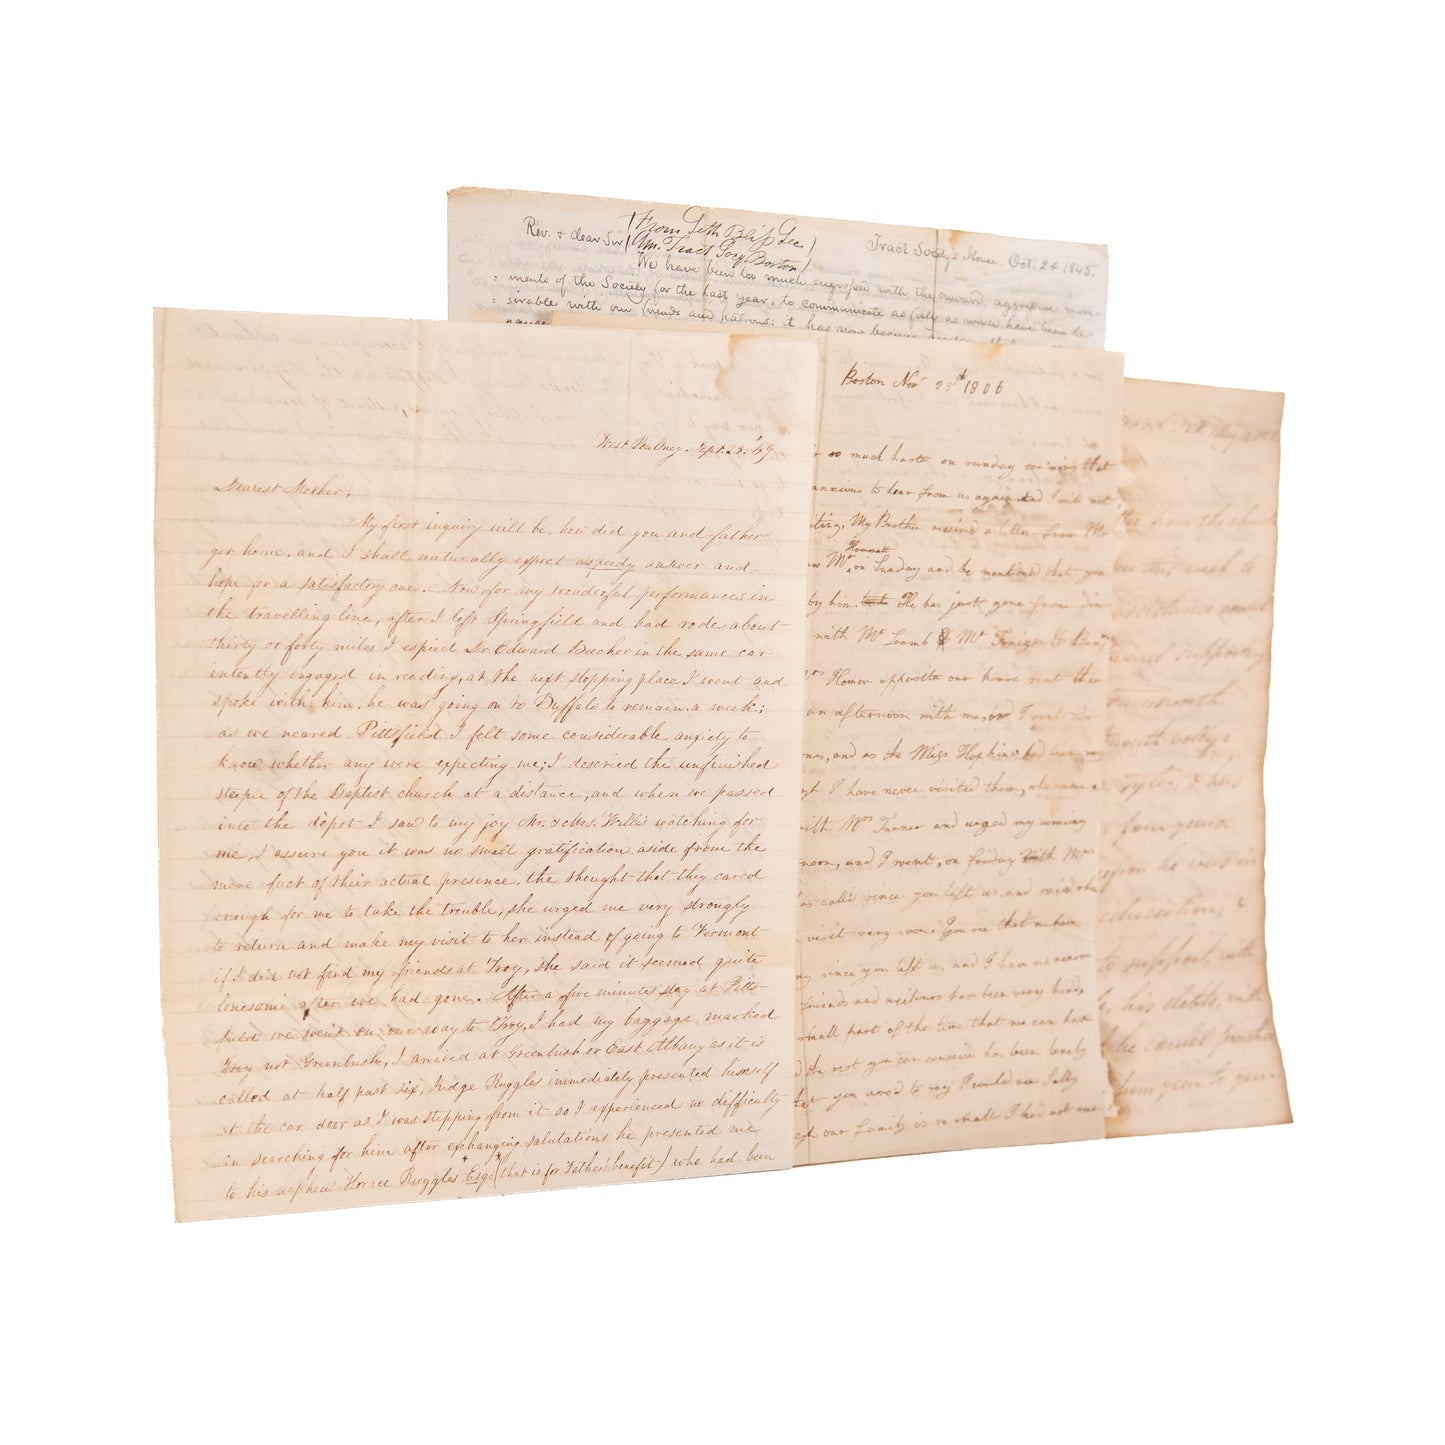 (From Seth Bliss Sec.)
Rev. & dear Sir (Am. Tract Socy Boston) Tract Society's House. Oct. 24 1845.
We have been too much engrossed with the onward aggressive move
= ments of the Society for the last year, to communicate as fully as would have been de
= sirable with our friends and patrons: it has now become
West Poultney. Sept. 23. '49
Dearest Mother,
My first inquiry will be, how did you and father
get home, and I shall naturally expect a speedy answer and
hope for a satisfactory one. Now for my wonderful performances in
the travelling line, after I left Springfield and had rode about
thirty or forty miles I espied Dr. Edward Beecher in the same car
intently engaged in reading, at the next stopping place I went and
spoke with him, he was going on to Buffalo to remain a week;
as we neared Pittsfield I felt some considerable anxiety to
know whether any were expecting me; I descried the unfinished
steeple of the Baptist church at a distance, and when we passed
into the depot I saw to my joy Mr. & Mrs. Willis watching for
me, I assure you it was no small gratification aside from the
mere fact of their actual presence, the thought that they cared
enough for me to take the trouble, she urged me very strongly
to return and make my visit to her instead of going to Vermont
if I did not find my friends at Troy, she said it seemed quite
lonesome after we had gone. After a five minutes stay at Pitts-
field we went on our way to Troy, I had my baggage marked
Troy not Greenbush, I arrived at Greenbush or East Albany as it is
called at half past six, Judge Ruggles immediately presented himself
at the car door as I was stepping from it so I experienced no difficulty
in searching for him after exchanging salutations he presented me
to his nephew Horace Ruggles Esq. (that is for Father's benefit) who had been
Boston Nov 25th 1806
so much haste on sunday evening that
anxious to hear from us again and I will not
iting, My Brother received a letter from Mr
Hommatt
Mr on Sunday and he mentioned that you
by him. He has just gone from din
with Mr Loamb & Mr
Homer opposite our house sent then
an afternoon with me, and I went for
and as the Miss Hopkins had been
I have never visited them,
with Mrs Turner and urged my coming
noon, and I went, on friday with Mrs
as call'd since you left us, and
visit very soon. You see that we have
since you left us, and I have no reason
friends and neibours have been very kind,
small part of the time that we can have
the rest you can conceive has been lonely
that you used to say I would
our family is so small I had not
May
from the church
this week to
assistance
supporting
Farnsworth
four years.
education, &
to support, with
his debts, with
he could preach
him, year to year